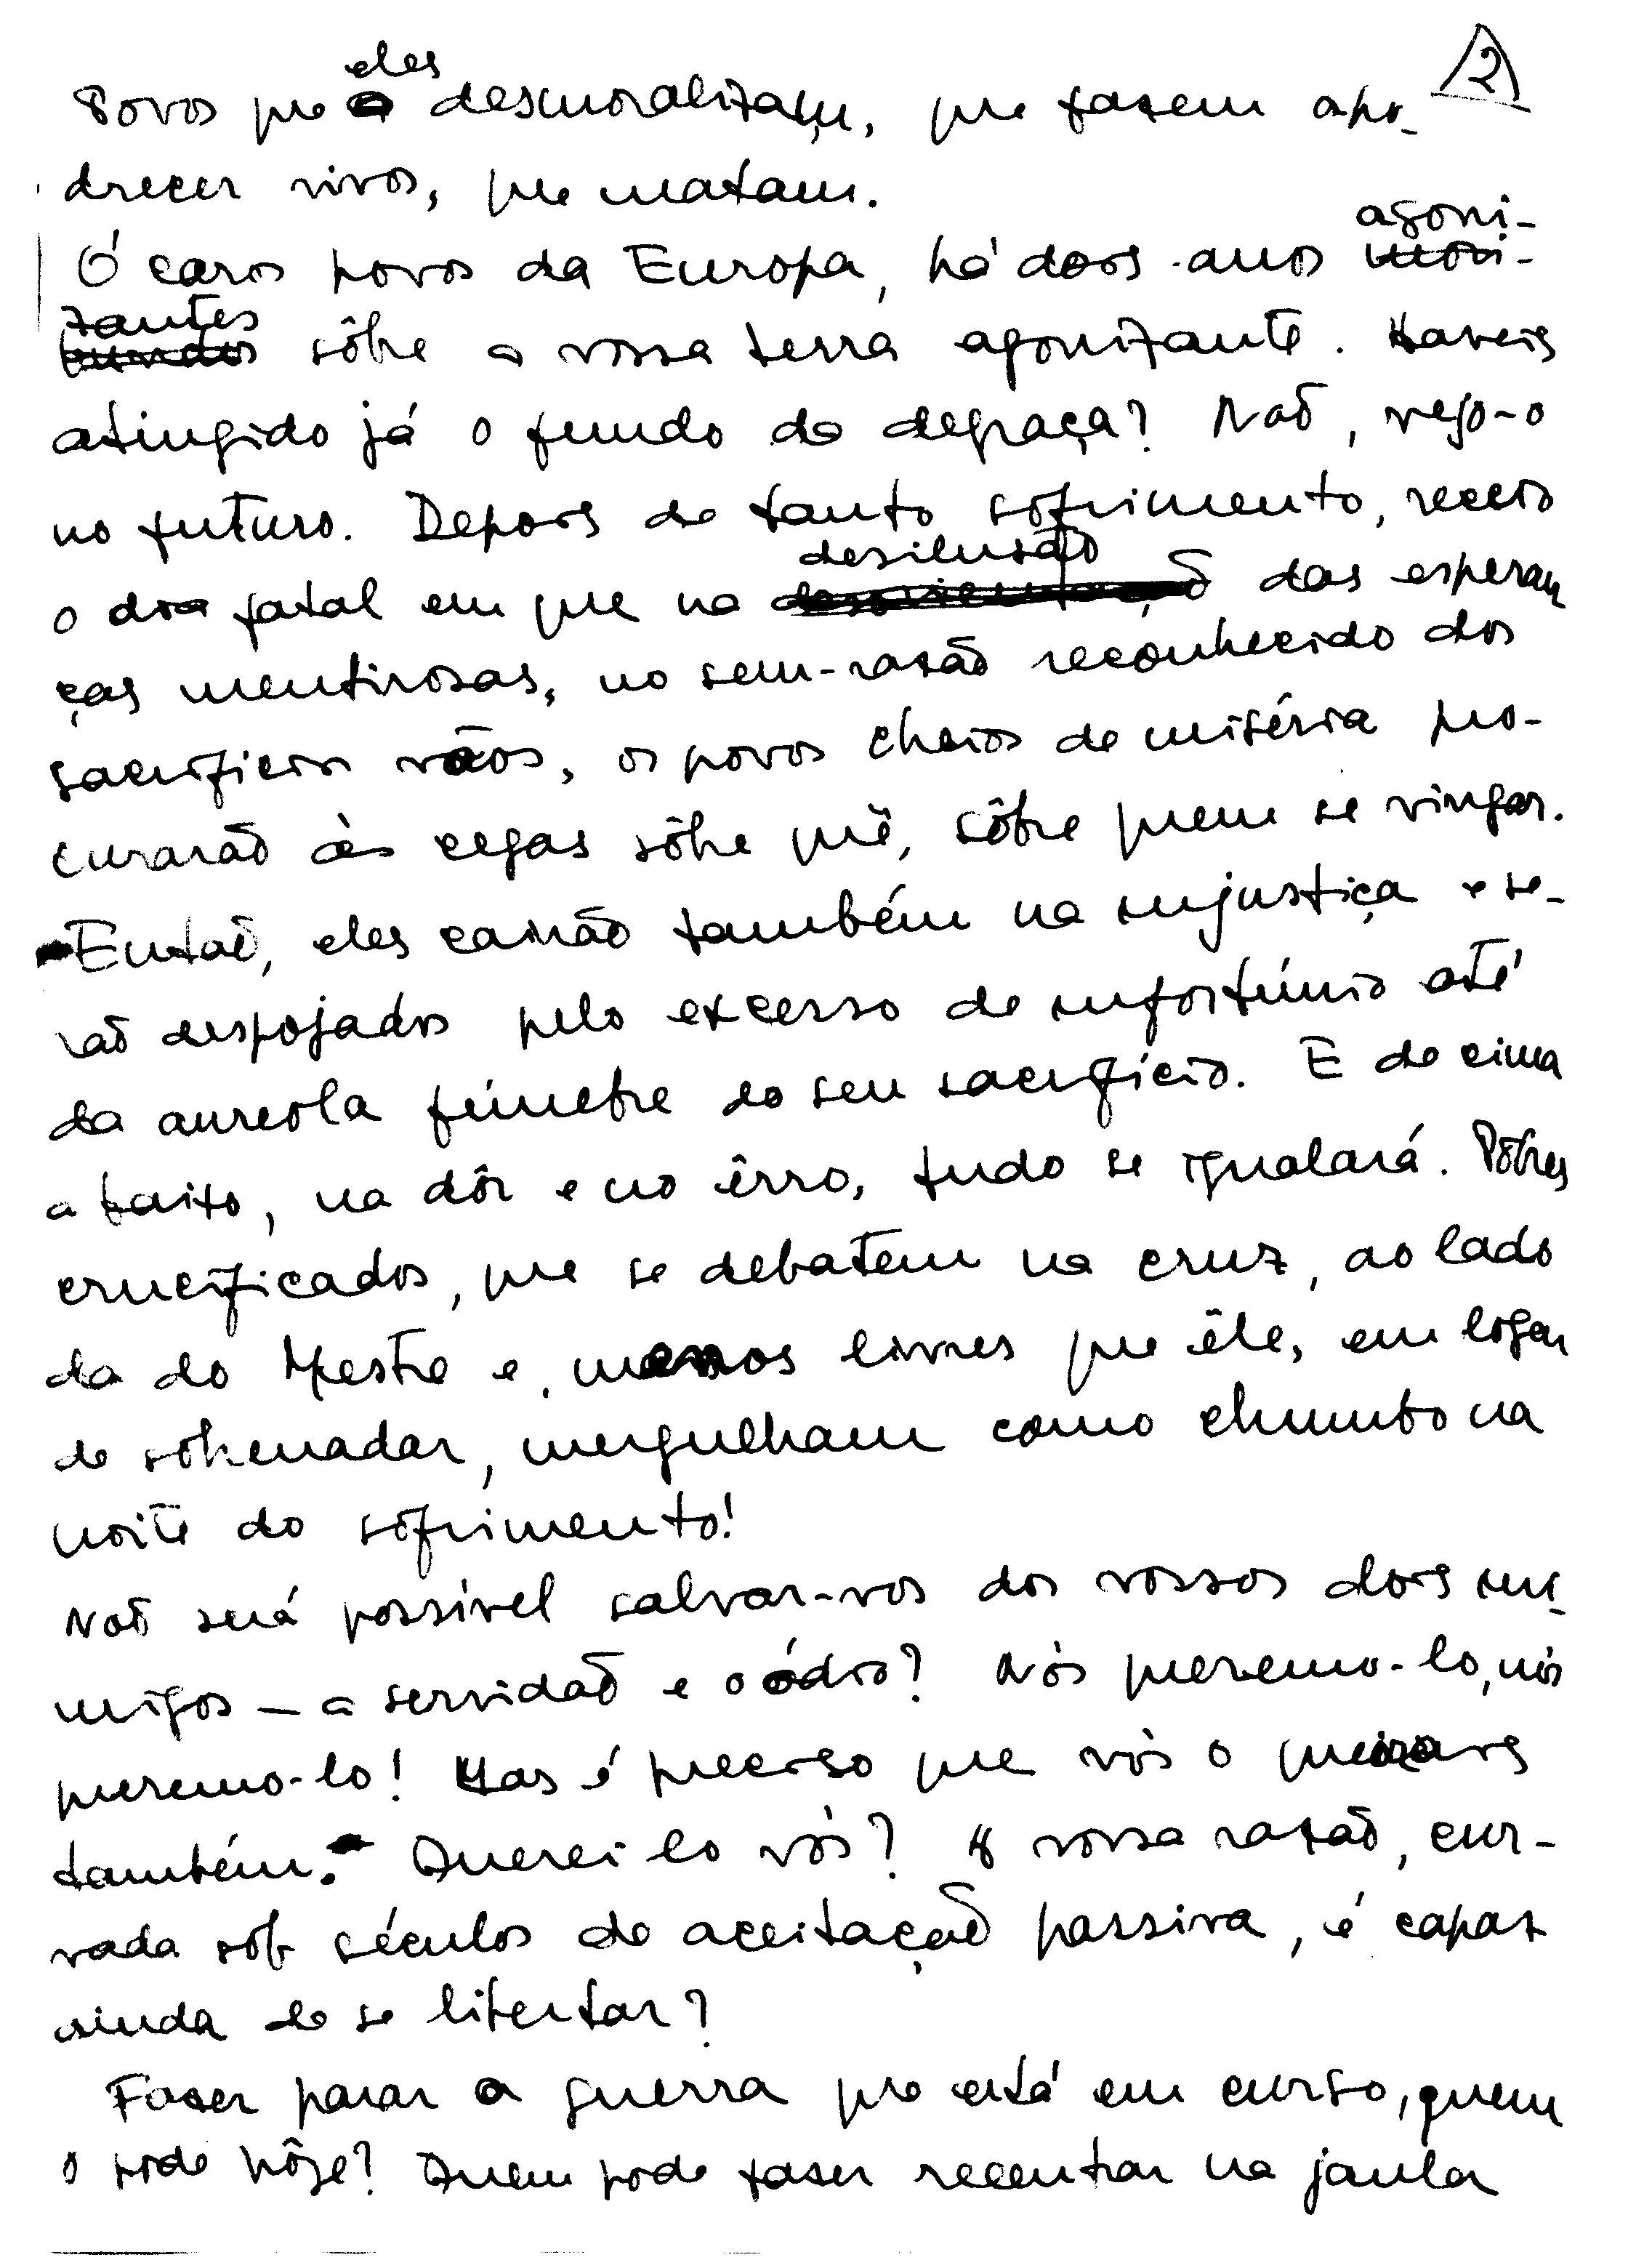 2
eles
Povos que a desmoralizam, que fazem apo-
drecer vivos, que matam.
agoni-
Ó caros povos da Europa, há dois anos mori-
zantes
bundos sôbre a vossa terra agonizante. Haveis
atingido já o fundo da degraça? Não, vejo-o
no futuro. Depois de tanto sofrimento, receio
desilusão
o dia fatal em que na desorientação das esperan
ças mentirosas, no sem-razão reconhecido dos
sacrifícios vãos, os povos cheios de miséria pro-
curarão às cegas sôbre quê, sôbre quem se vingar.
Então, eles cairão também na injustiça e se-
rão despojados pelo excesso de infortúnio até
da aureola fúnebre do seu sacrifício. E de cima
a baixo, na dôr e no êrro, tudo se igualará. Pobres
crucificados, que se debatem na cruz, ao lado
da do Mestre e, menos livres que êle, em logar
de sobrenadar, mergulham como chumbo na
noite do sofrimento!
Não será possível salvar-vos dos vossos dois ini-
migos — a servidão e o ódio? Nós queremo-lo, nós
queremo-lo! Mas é preciso que vós o queirais
também. Querei lo vós? A vossa razão, cur-
vada sob séculos de aceitação passiva, é capaz
ainda de se libertar?
Fazer parar a guerra que está em curso, quem
o pode hôje? Quem pode fazer reentrar na jaula